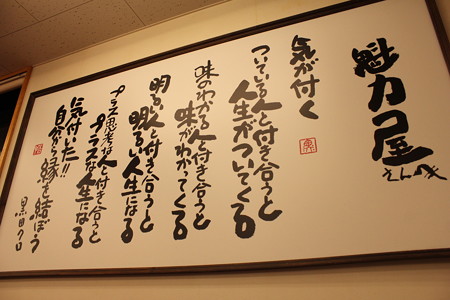 魁力屋
さんへ
気が付く
ついている人と付き合うと
人生がついてくる
味のわかる人と付き合うと
味がわかってくる
明るい人と付き合うと
明るい人生になる
プラス思考な人と付き合うと
プラスな人生になる
気付いた!!
自分から縁を結ぼう
黒田クロ